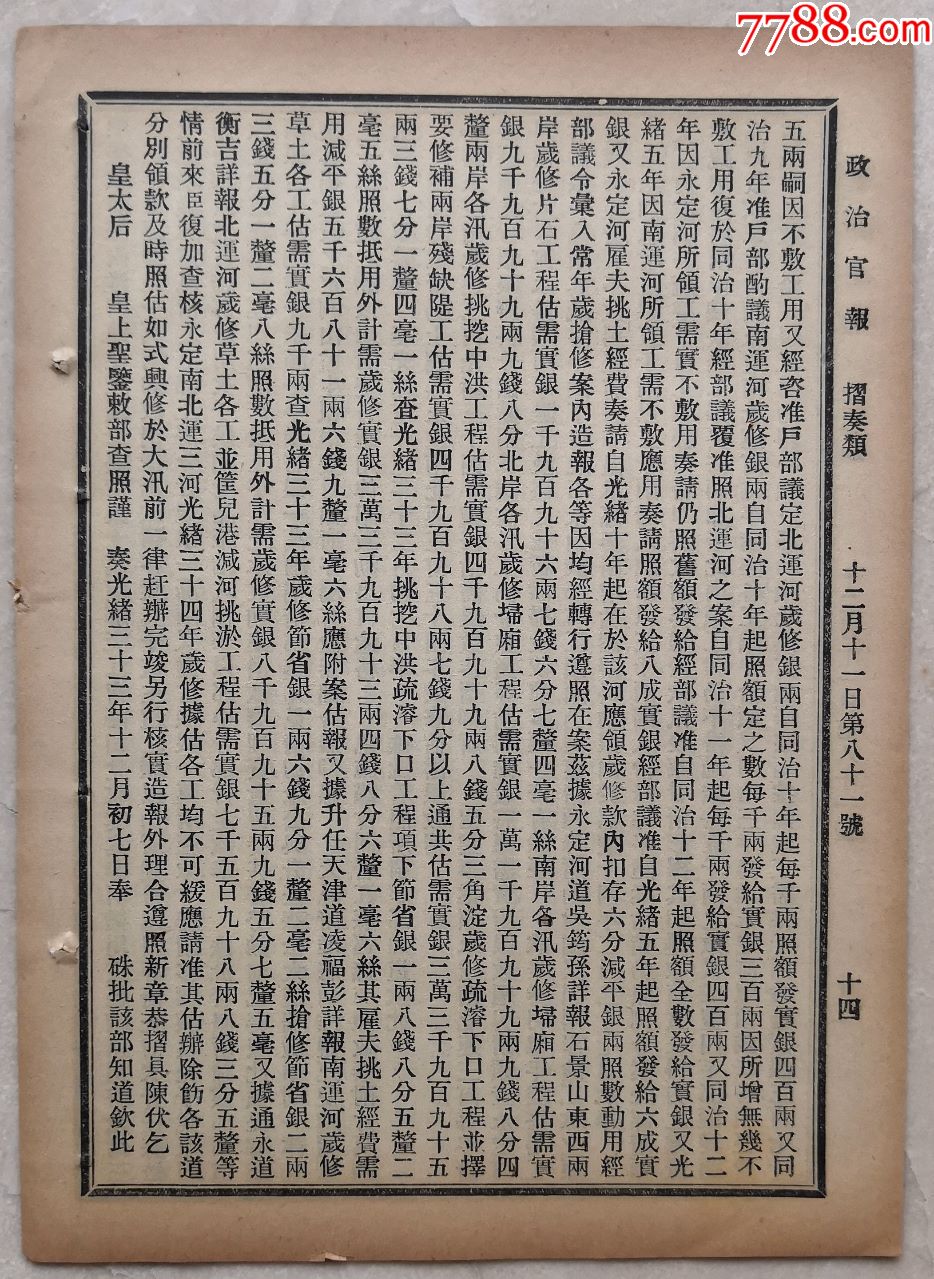 7788.com
政治官報 摺奏類 十二月十一日第八十一號 十四
五兩嗣因不敷工用又經咨准戶部議定北運河歲修銀兩自同治十年起每千兩照額發實銀四百兩又同
治九年准戶部酌議南運河歲修銀兩自同治十年起照額定之數每千兩發給實銀三百兩因所增無幾不
敷工用復於同治十年經部議覆准照北運河之案自同治十一年起每千兩發給實銀四百兩又同治十二
年因永定河所領工需實不敷用奏請仍照舊額發給經部議准自同治十二年起照額全數發給實銀又光
緒五年因南運河所領工需不敷應用奏請照額發給八成實銀經部議准自光緒五年起照額發給六成實
銀又永定河雇夫挑土經費奏請自光緒十年起在於該河應領歲修款內扣存六分減平銀兩照數動用經
部議令彙入常年歲搶修案內造報各等因均經轉行遵照在案茲據永定河道吳筠孫詳報石景山東西兩
岸歲修片石工程估需實銀一千九百九十六兩七錢六分七釐四毫一絲南岸各汛歲修埽廂工程估需實
銀九千九百九十九兩九錢八分北岸各汛歲修埽廂工程估需實銀一萬一千九百九十九兩九錢八分四
釐兩岸各汛歲修挑挖中洪工程估需實銀四千九百九十九兩八錢五分三角淀歲修疏濬下口工程並擇
要修補兩岸殘缺隄工估需實銀四千九百九十八兩七錢九分以上通共估需實銀三萬三千九百九十五
兩三錢七分一釐四毫一絲查光緒三十三年挑挖中洪疏濬下口工程項下節省銀一兩八錢八分五釐二
毫五絲照數抵用外計需歲修實銀三萬三千九百九十三兩四錢八分六釐一毫六絲其雇夫挑土經費需
用減平銀五千六百八十一兩六錢九釐一毫六絲應附案估報又據升任天津道凌福彭詳報南運河歲修
草土各工估需實銀九千兩查光緒三十三年歲修節省銀一兩六錢九分一釐二毫二絲搶修節省銀二兩
三錢五分一釐二毫八絲照數抵用外計需歲修實銀八千九百九十五兩九錢五分七釐五毫又據通永道
衡吉詳報北運河歲修草土各工並筐兒港減河挑淤工程估需實銀七千五百九十八兩八錢三分五釐等
情前來臣復加查核永定南北運三河光緒三十四年歲修據估各工均不可緩應請准其估辦除飭各該道
分別領款及時照估如式興修於大汛前一律赶辦完竣另行核實造報外理合遵照新章恭摺具陳伏乞
皇太后 皇上聖鑒敕部查照謹 奏光緒三十三年十二月初七日奉 硃批該部知道欽此